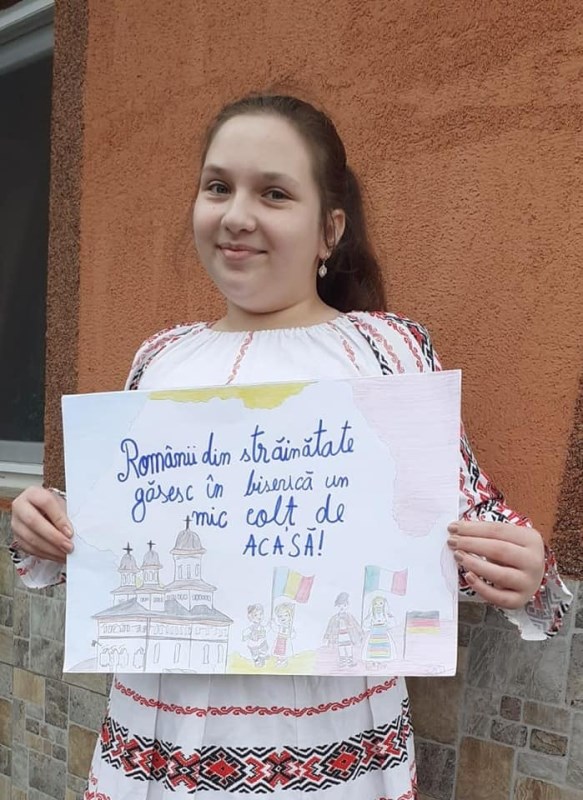 Românii din străinătate
găsesc în biserică un
mic colț de
ACASĂ!